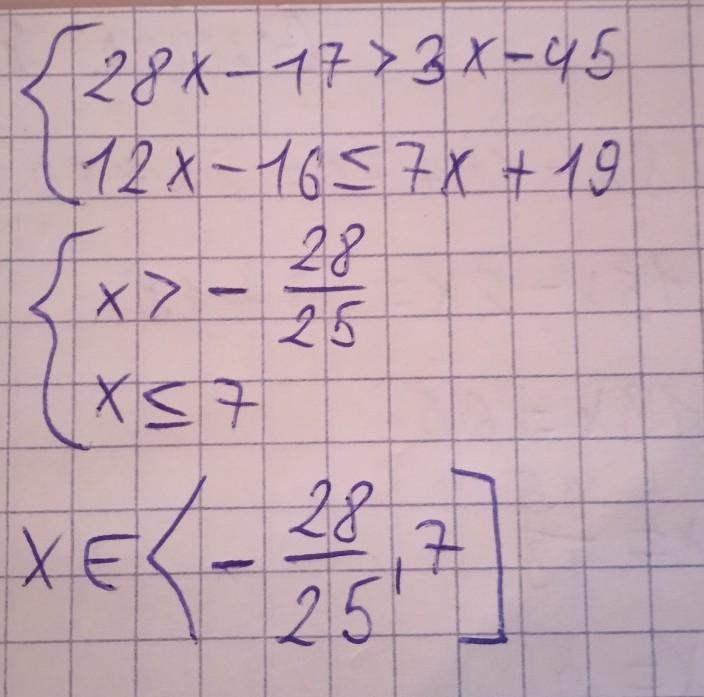 { 28x - 17 > 3x - 45
12x - 16 ≤ 7x + 19
{ x > - 28/25
x ≤ 7
x ∈ ⟨ - 28/25 , 7 ]